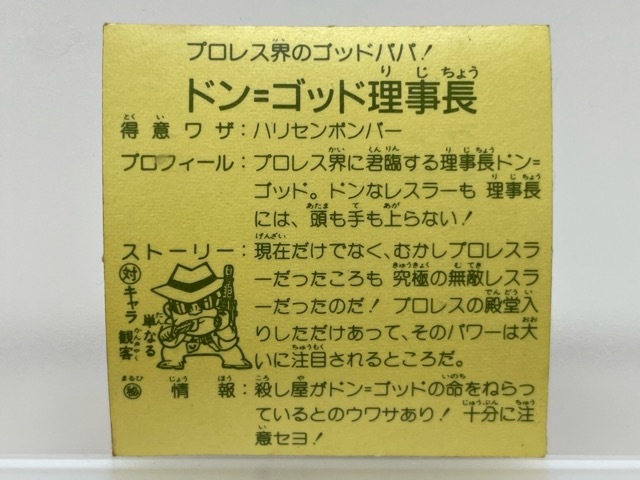 プロレス界のゴッドパパ！
ドン=ゴッド理事長
得意ワザ：ハリセンボンバー
プロフィール：プロレス界に君臨する理事長ドン=
ゴッド。ドンなレスラーも 理事長
には、頭も手も上らない！
ストーリー：現在だけでなく、むかしプロレスラ
ーだったころも 究極の無敵レスラ
ーだったのだ！ プロレスの殿堂入
りしただけあって、そのパワーは大
いに注目されるところだ。
対キャラ
単なる観客
㊙情報：殺し屋がドン=ゴッドの命をねらっ
ているとのウワサあり！ 十分に注
意セヨ！